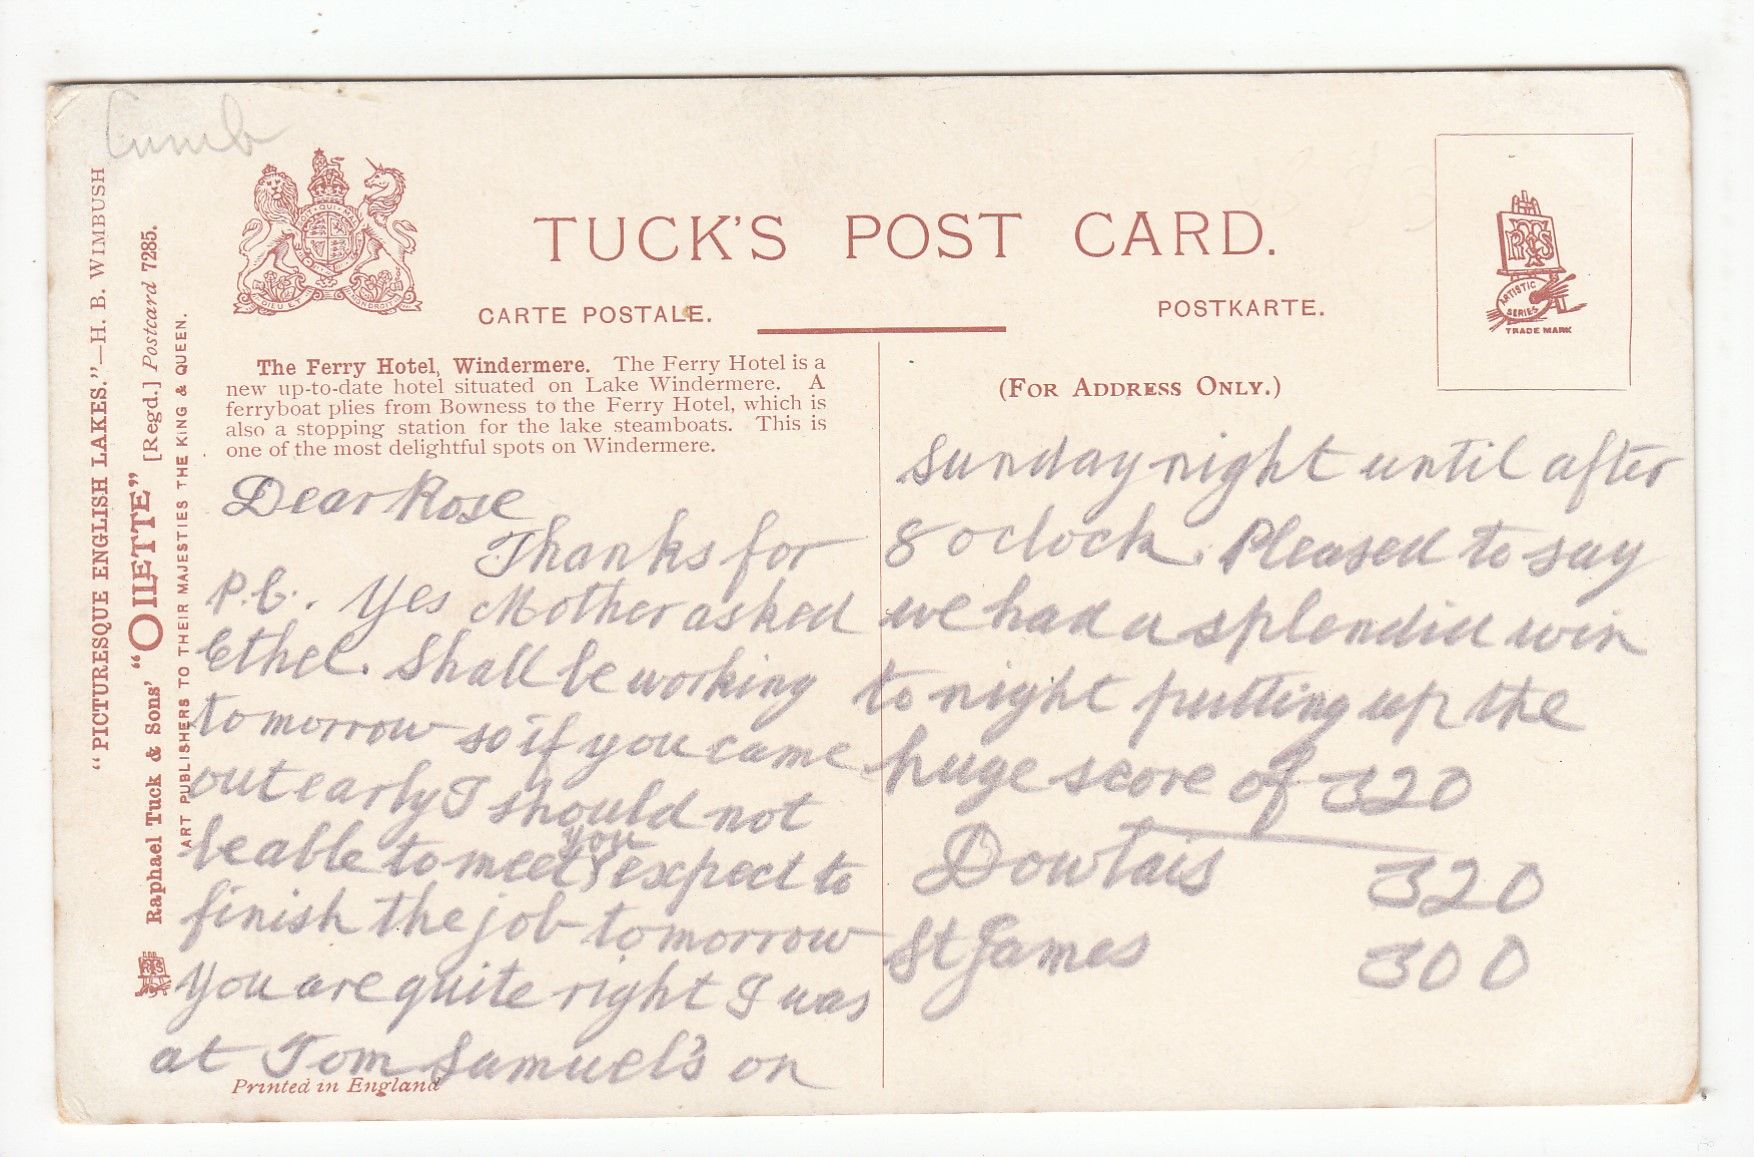 Cumb
"PICTURESQUE ENGLISH LAKES."—H. B. WIMBUSH
Raphael Tuck & Sons' "OILETTE" [Regd.] Postcard 7285.
ART PUBLISHERS TO THEIR MAJESTIES THE KING & QUEEN.
TUCK'S POST CARD.
CARTE POSTALE.
POSTKARTE.
ARTISTIC
SERIES
TRADE MARK
(FOR ADDRESS ONLY.)
The Ferry Hotel, Windermere. The Ferry Hotel is a
new up-to-date hotel situated on Lake Windermere. A
ferryboat plies from Bowness to the Ferry Hotel, which is
also a stopping station for the lake steamboats. This is
one of the most delightful spots on Windermere.
Dear Rose
Thanks for
P.C. Yes Mother asked
Ethel. Shall be working
tomorrow so if you came
out early I should not
be able to meet you expect to
finish the job tomorrow
You are quite right I was
at Tom Samuel's on
Printed in England
Sunday night until after
8 oclock. Pleased to say
we had a splendid win
to night putting up the
huge score of 320
Dowlais 320
St James 300